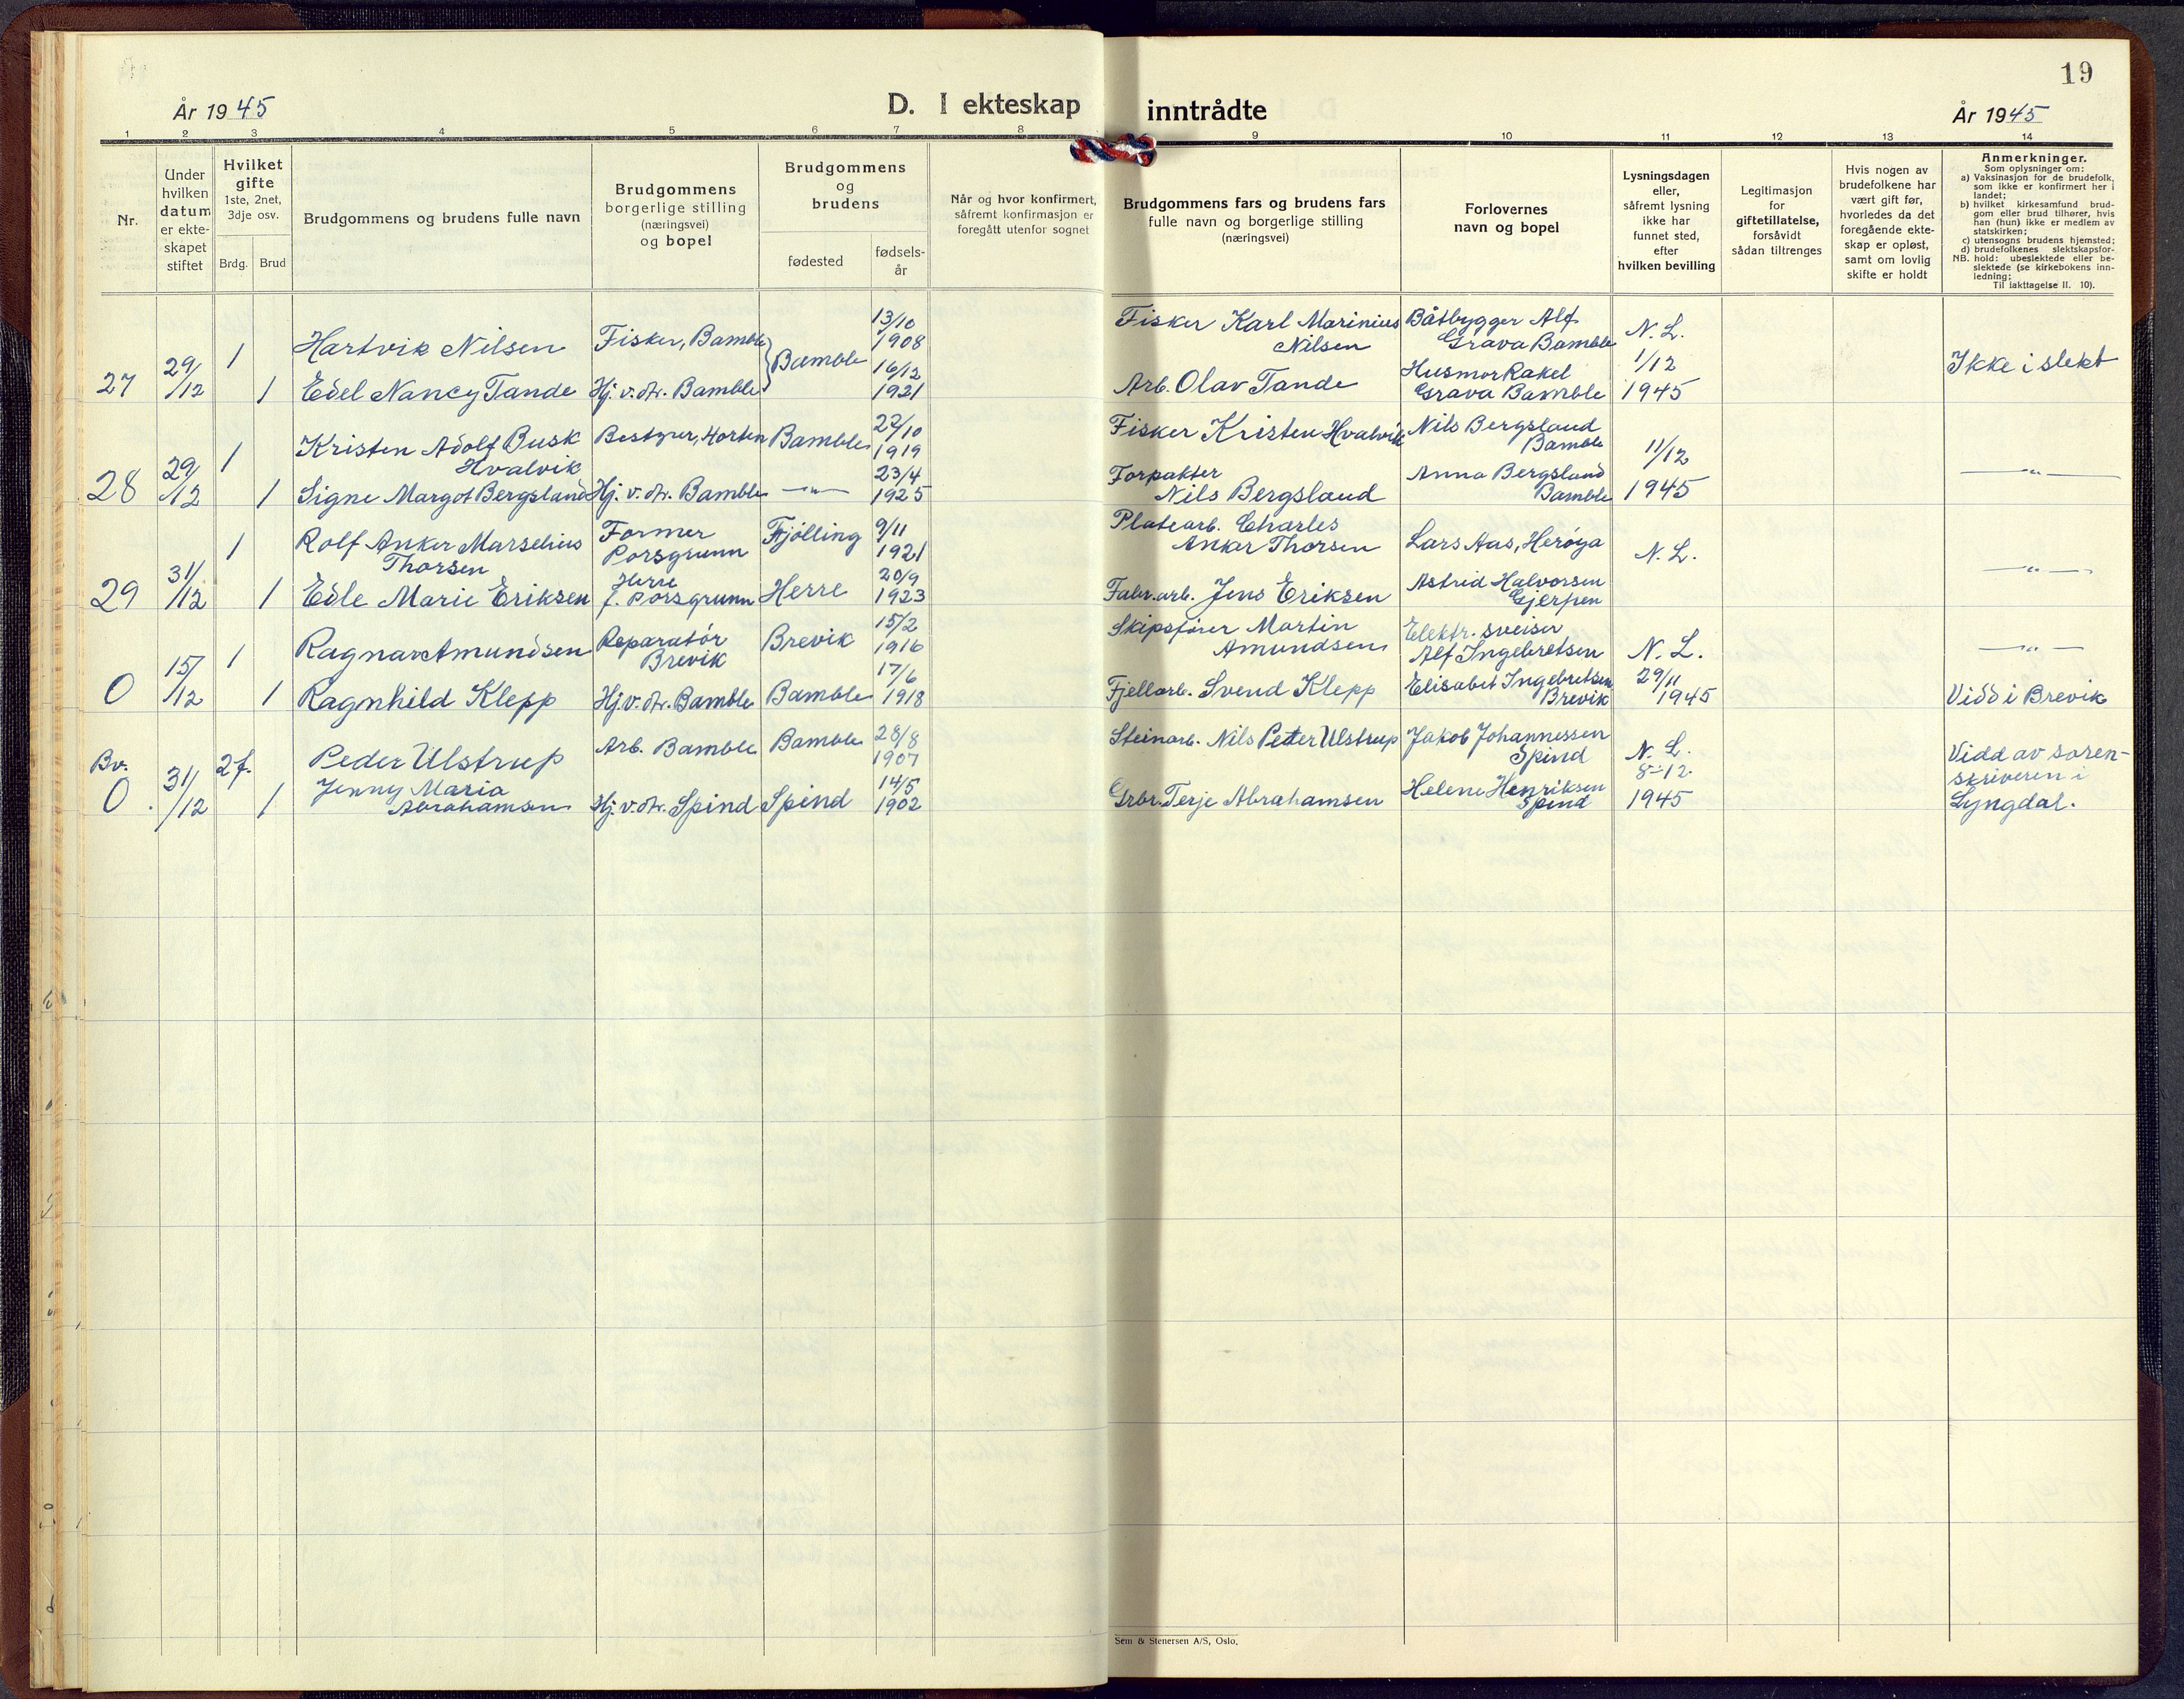 19
År 1945
D. I ekteskap inntrådte
År 1945
1 2 3 4 5 6 7 8 9 10 11 12 13 14
Nr.
Under
hvilken
datum
er ekte-
skapet
stiftet
Hvilket
gifte
1ste, 2net,
3dje osv.
Brdg. Brud
Brudgommens og brudens fulle navn
Brudgommens
borgerlige stilling
(næringsvei)
og bopel
Brudgommens
og
brudens
fødested
fødsels-
år
Når og hvor konfirmert,
såfremt konfirmasjon er
foregått utenfor sognet
Brudgommens fars og brudens fars
fulle navn og borgerlige stilling
(næringsvei)
Forlovernes
navn og bopel
Lysningsdagen
eller,
såfremt lysning
ikke har
funnet sted,
efter
hvilken bevilling
Legitimasjon
for
giftetillatelse,
forsåvidt
sådan tiltrenges
Hvis nogen av
brudefolkene har
vært gift før,
hvorledes da det
foregående ekte-
skap er opløst,
samt om lovlig
skifte er holdt
Anmerkninger.
Som oplysninger om:
a) Vaksinasjon for de brudefolk,
som ikke er konfirmert her i
landet;
b) hvilket kirkesamfund brud-
gom eller brud tilhører, hvis
han (hun) ikke er medlem av
statskirken;
c) utensogns brudens hjemsted;
d) brudefolkenes slektskapsfor-
NB. hold: ubeslektede eller be-
slektede (se kirkebokens inn-
ledning;
Til iakttagelse II. 10).
27
29/12
1
1
Hartvik Nilsen
Edel Nancy Tande
Fisker, Bamble
Hj. v. dr. Bamble
Bamble
13/10
1908
16/12
1921
Fisker Karl Marinius
Nilsen
Arb. Olav Tande
Båtbygger Alf
Grava Bamble
Husmor Rakel
Grava Bamble
N. L.
1/12
1945
Ikke i slekt
28
29/12
1
1
Kristen Adolf Busk
Hvalvik
Signe Margot Bergsland
Bestyrer, Horten
Hj. v. dr. Bamble
Bamble
—"—
22/10
1919
23/4
1925
Fisker Kristen Hvalvik
Forpakter
Nils Bergsland
Nils Bergsland
Bamble
Anna Bergsland
Bamble
11/12
1945
—"—
29
31/12
1
1
Rolf Anker Marselius
Thorsen
Edle Marie Eriksen
Former
Porsgrunn
Herre
f. Porsgrunn
Tjølling
Herre
9/11
1921
20/9
1923
Platearb. Charles
Anker Thorsen
Fabr.arb. Jens Eriksen
Lars Aas, Herøya
Astrid Halvorsen
Gjerpen
N. L.
—"—
0
15/12
1
1
Ragnar Amundsen
Ragnhild Klepp
Reparatør
Brevik
Hj. v. dr. Bamble
Brevik
Bamble
15/2
1916
17/6
1918
Skipsfører Martin
Amundsen
Fjellarb. Svend Klepp
Elektr. sveiser
Alf Ingebretsen
Elisabet Ingebretsen
Brevik
N. L.
29/11
1945
—"—
Vidd i Brevik
Bv.
0
31/12
2 f.
1
Peder Ulstrup
Jenny Maria
Abrahamsen
Arb. Bamble
Hj. v. dr. Spind
Bamble
Spind
28/8
1907
14/5
1902
Steinarb. Nils Petter Ulstrup
Grbr. Terje Abrahamsen
Jakob Johannessen
Spind
Helene Henriksen
Spind
N. L.
8-12.
1945
Vidd av soren-
skriveren i
Lyngdal.
Sem & Stenersen A/S, Oslo.